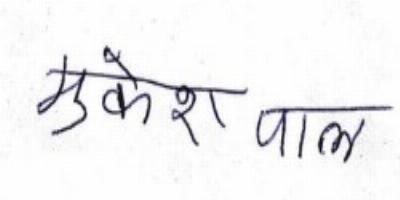 मुकेश पाल